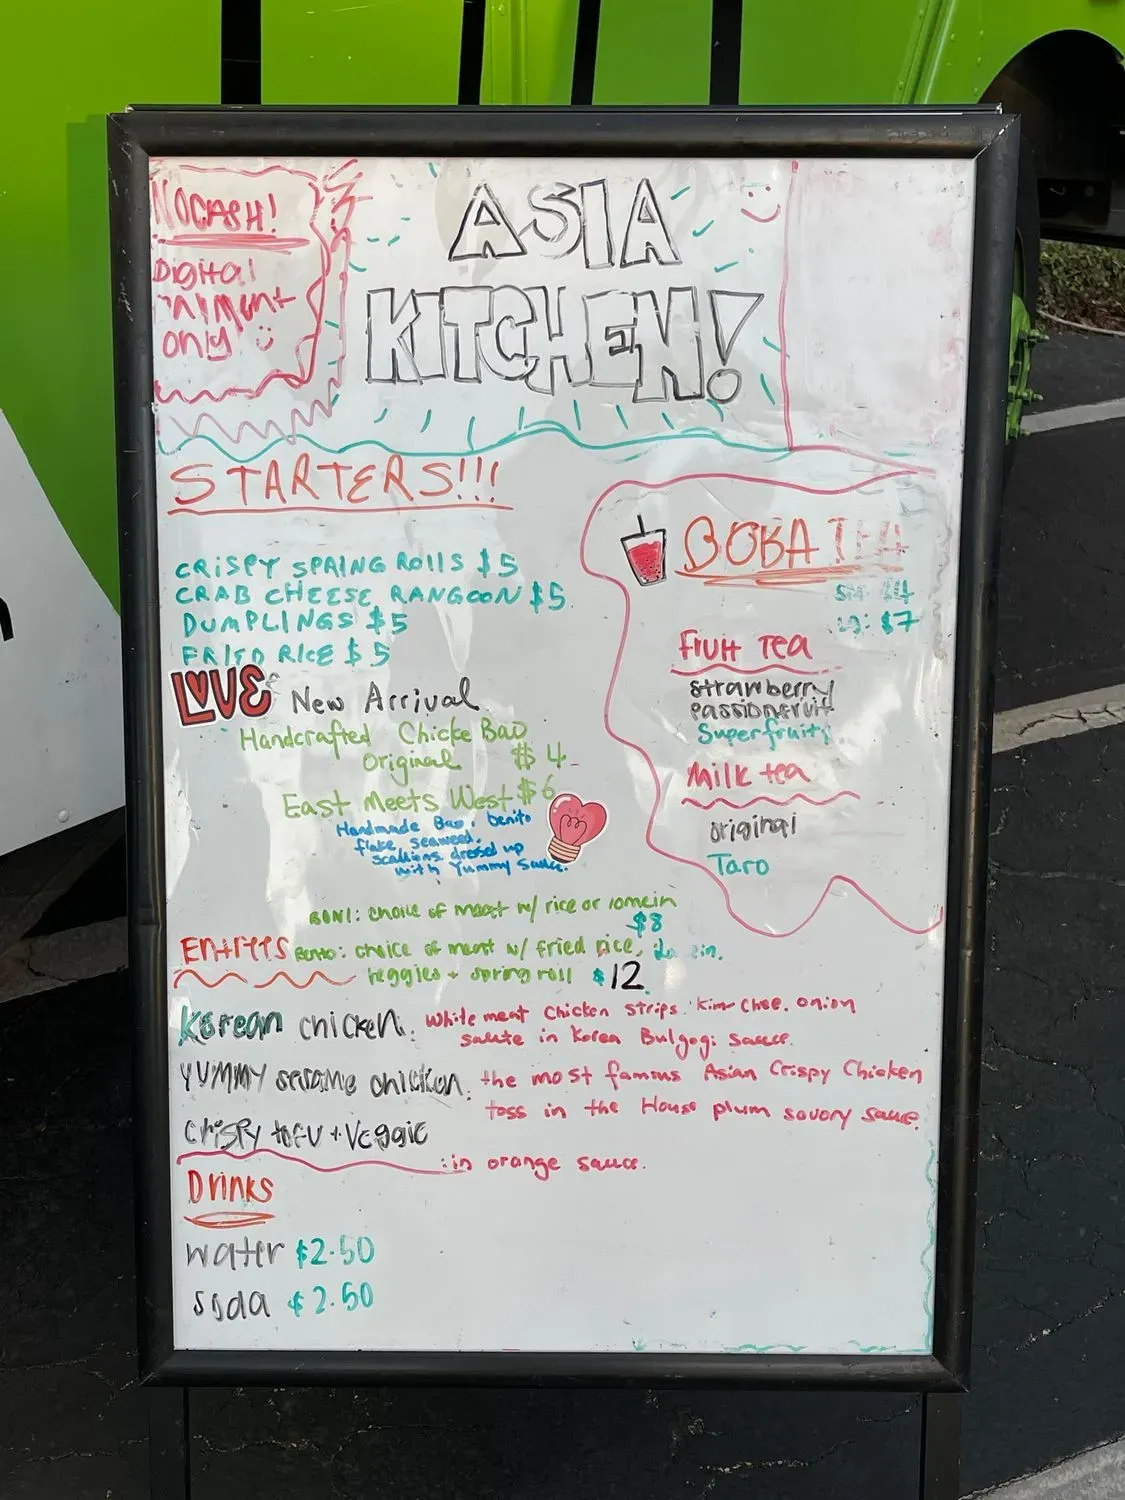 NO CASH!
Digital
payment
only
ASIA
KITCHEN!
STARTERS!!!
CRISPY SPRING ROLLS $5
CRAB CHEESE RANGOON $5
DUMPLINGS $5
FRIED RICE $5
LOVE
New Arrival
Handcrafted Chicke Bao
Original $4
East Meets West $6
Handmade Bao, benito
flake, seaweed,
scallions dressed up
with Yummy Sauce.
BOBA TEA
SM: $4
LG: $7
Fruit Tea
strawberry
passionfruit
Superfruit
Milk tea
original
Taro
BOWL: choice of meat w/ rice or lomein
$8
Entrees
Bento: choice of meat w/ fried rice, lomein.
veggies + spring roll $12
Korean chicken: white meat chicken strips. kim chee. onion
saute in Korea Bulgogi sauce.
YUMMY sesame chicken: the most famous Asian Crispy Chicken
toss in the House plum savory sauce.
crispy tofu + Veggie
: in orange sauce.
Drinks
water $2.50
soda $2.50